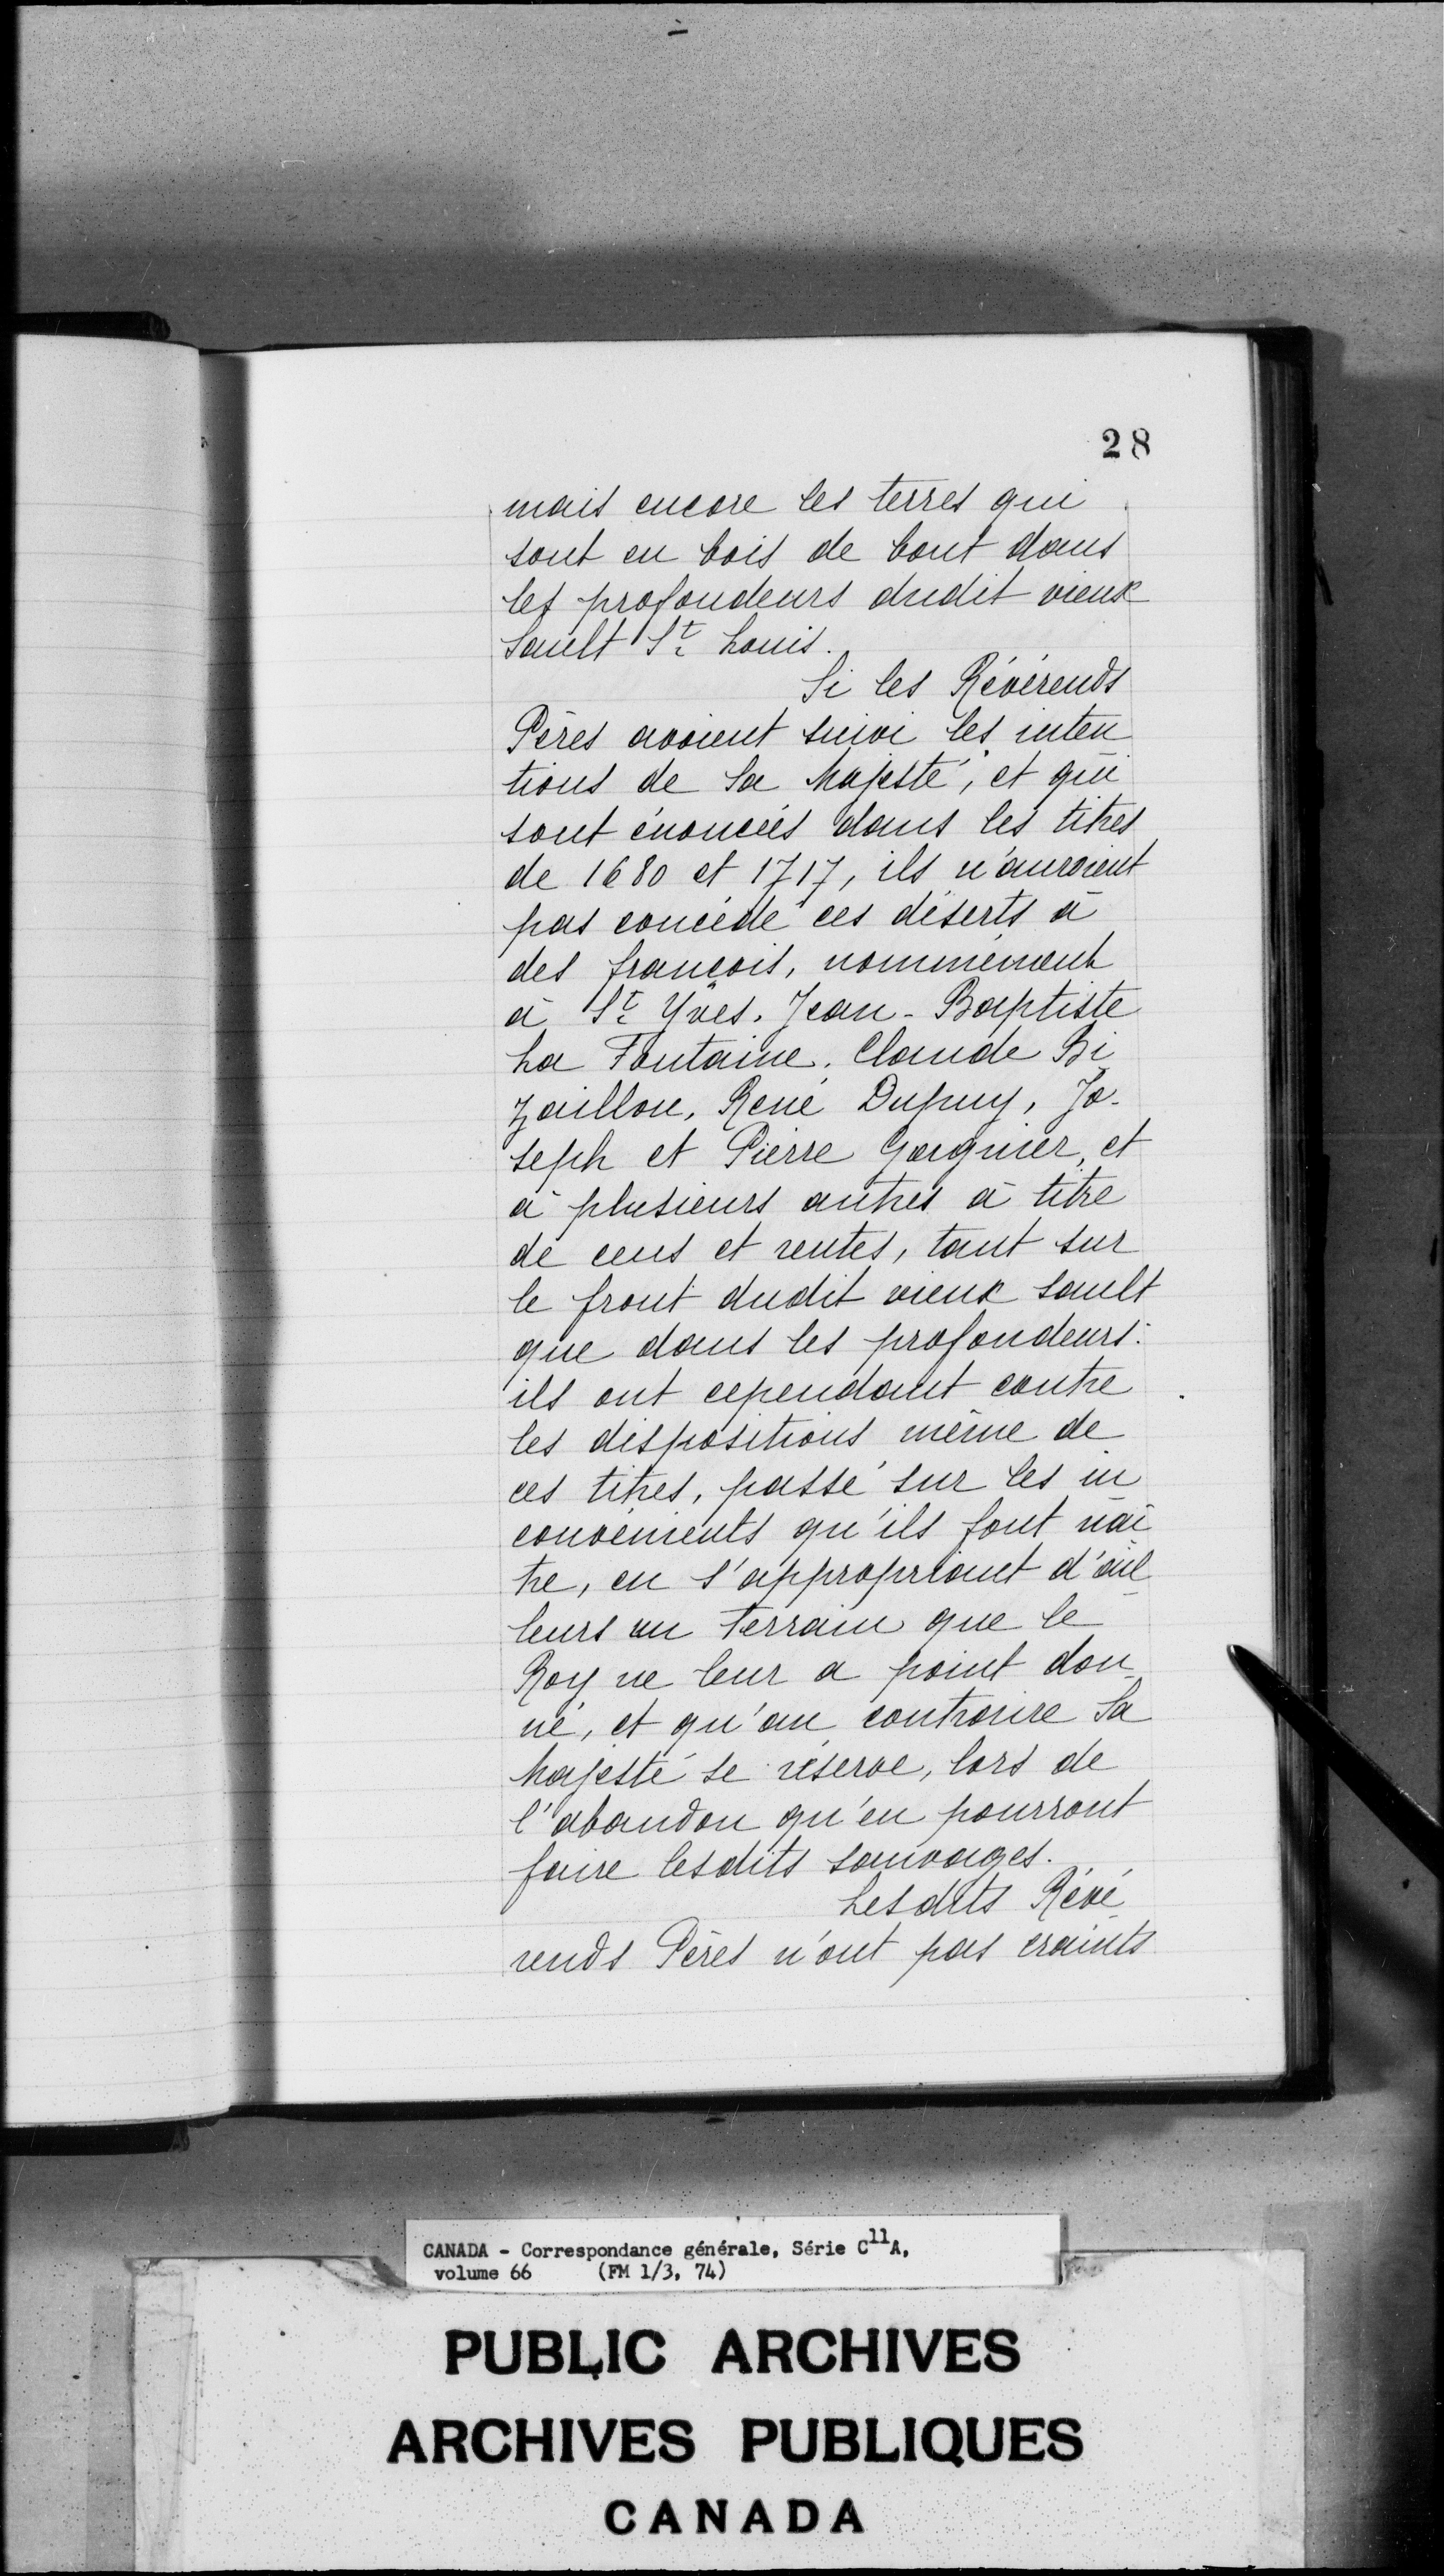 28
mais encore les terres qui
sont en bois de bout dans
les profondeurs dudit vieux
Sault St. Louis.
Si les Révérends
Pères avoient suivi les inten
tions de Sa Majesté, et qui
sont énoncées dans les titres
de 1680 et 1717, ils n'auroient
pas concédé ces déserts à
des françois, nommément
à St. Yves. Jean-Baptiste
La Fontaine. Claude Bi
zaillon, René Dupuy, Jo-
seph et Pierre Gagnier, et
à plusieurs autres à titre
de cens et rentes, tant sur
le front dudit vieux Sault
que dans les profondeurs:
ils ont cependant contre
les dispositions même de
ces titres, passé sur les in
convénients qu'ils font naî
tre, en s'appropriant d'ail
leurs un terrain que le
Roy ne leur a point don-
né, et qu'au contraire Sa
Majesté se réserve, lors de
l'abandon qu'en pourront
faire lesdits sauvages.
Lesdits Révé
rends Pères n'ont pas craints
CANADA - Correspondance générale, Série C11A,
volume 66 (FM 1/3, 74)
PUBLIC ARCHIVES
ARCHIVES PUBLIQUES
CANADA